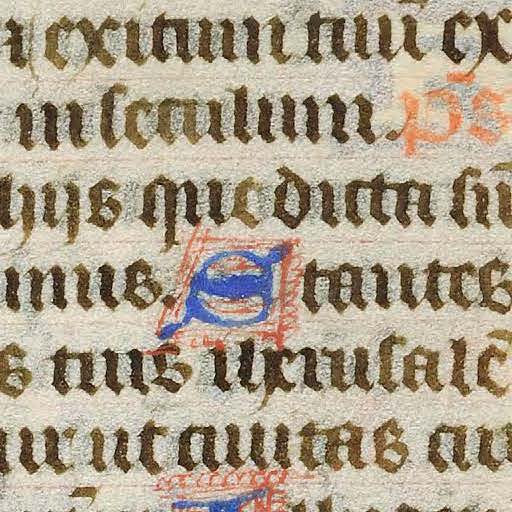 exitum tuū ex
in seculum. ps
hijs que dicta sūt
imus. Stantes
s tuis iherusalē
ur ut ciuitas cu